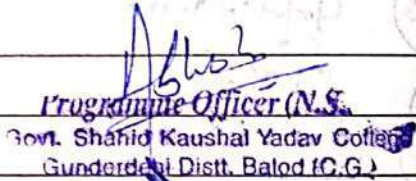 Programme Officer (N.S.
Govt. Shahid Kaushal Yadav College
Gunderdehi Distt. Balod (C.G.)